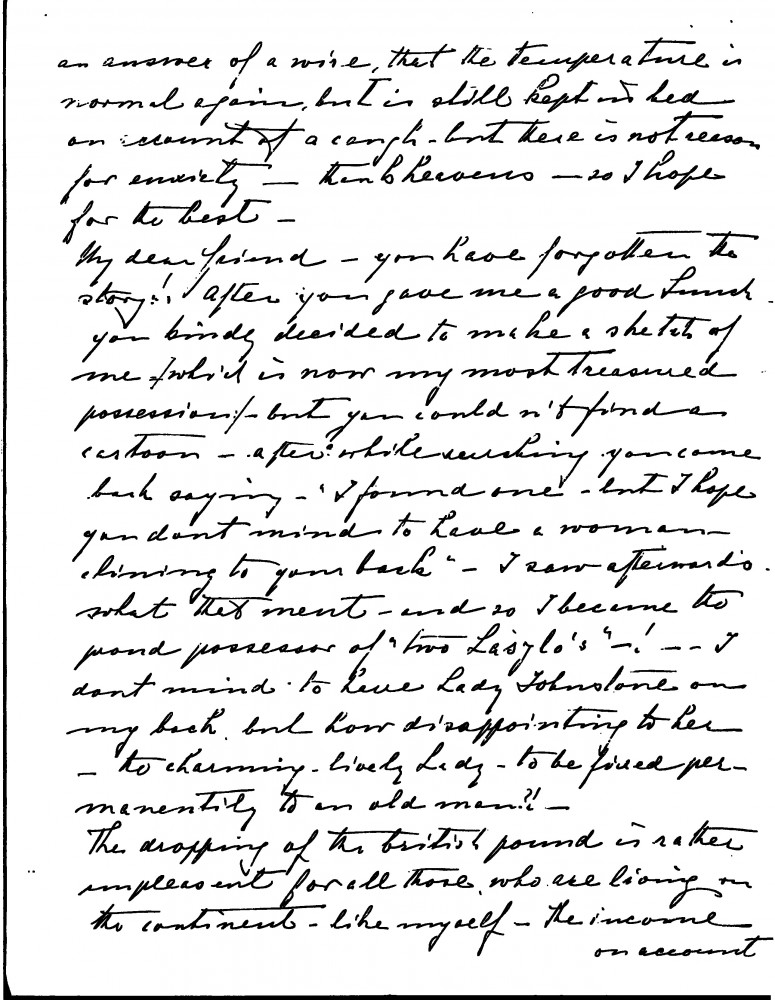 an answer of a wire, that the temperature is
normal again, but is still kept in bed
on account of a cough - but there is not reason
for enxiety — thanks heavens — so I hope
for the best -
My dear friend - you have forgotten the
story!! After you gave me a good Lunch -
you kindly decided to make a sketch of
me /which is now my most treasured
possession/- but you could n't find a
cartoon - after while surching you came
back saying - "I found one - but I hope
you dont mind to have a woman
clining to your back" - I saw afterwards.
what that ment - and so I became the
proud possessor of "two László's" -! -- I
dont mind to have Lady Johnstone on
my back, but how disappointing to her
- the charming - lively Lady - to be fixed per-
manentily to an old man?! -
The dropping of the british pound is rather
unpleasent for all those, who are living on
the continent - like myself - the income
on account